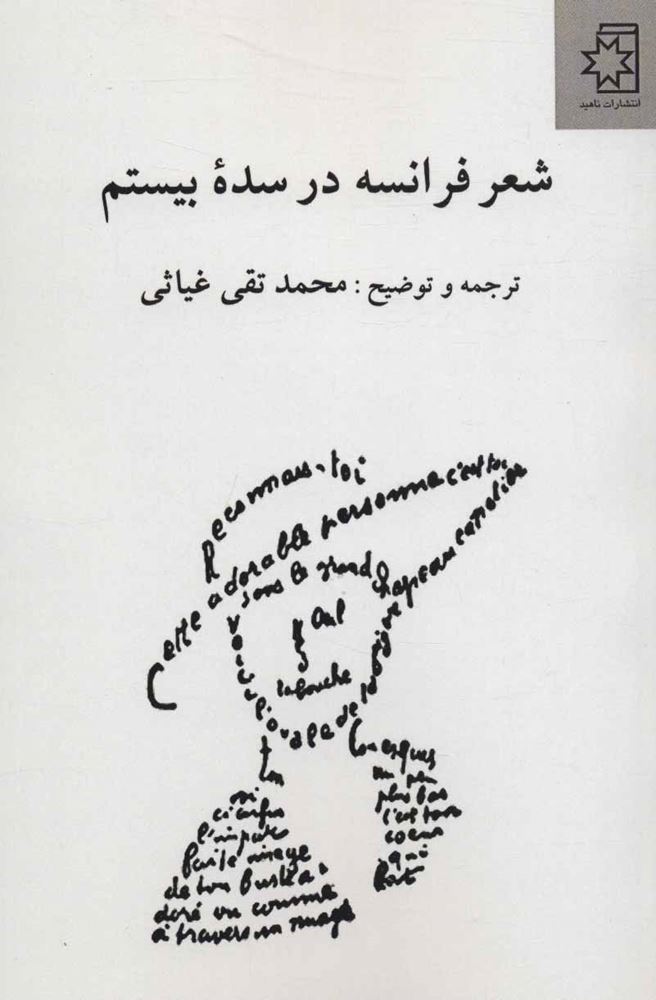 انتشارات ناهید
شعر فرانسه در سدهٔ بیستم
ترجمه و توضیح : محمد تقی غیاثی
Reconnais-toi
Cette adorable personne c'est toi
sous le grand chapeau canotier
Œil
la bouche
Voici l'ovale de ta figure
ton
Cou exquis
ci enfin
l'impar
faite image
de ton buste a
doré vu comme
à travers un nuage
un peu
plus bas
c'est ton
coeur
qui
bat